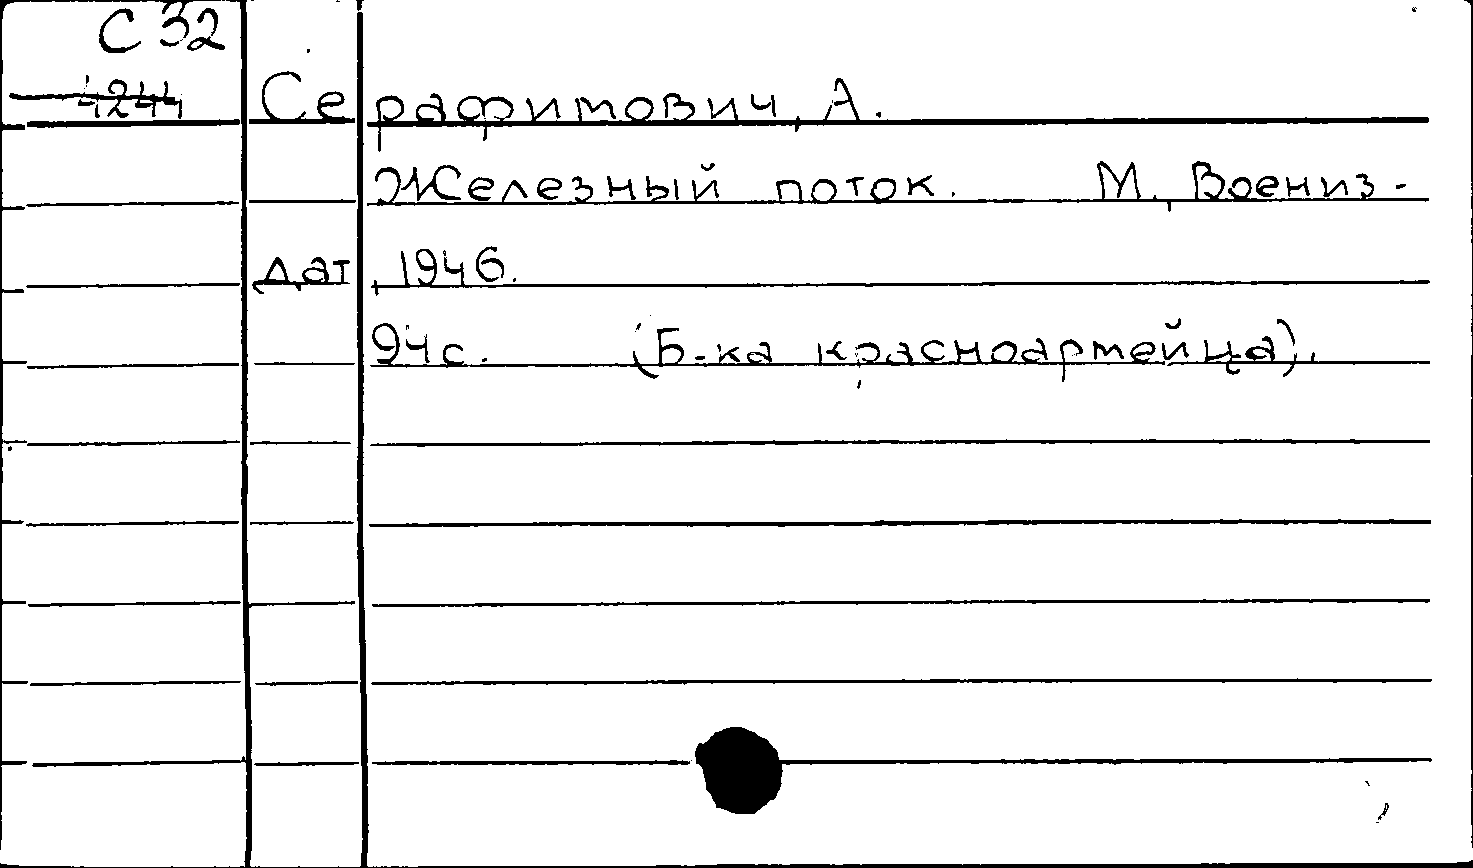 С 32
4244
Серафимович, А.
Железный поток. М., Воениз-
дат, 1946.
94 с. (Б-ка красноармейца).